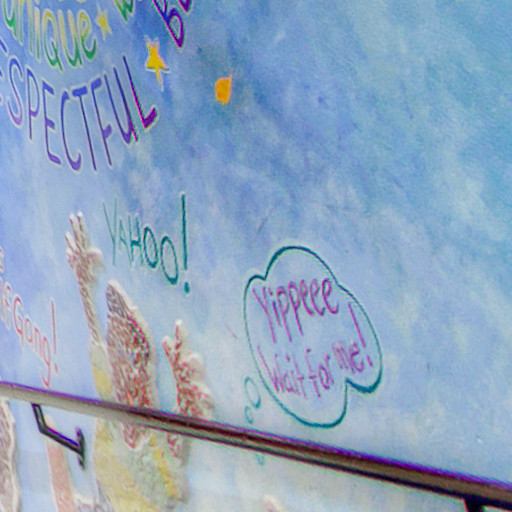 unique
ESPECTFUL
YAHOO!
Gang!
Yippeee
Wait for me!